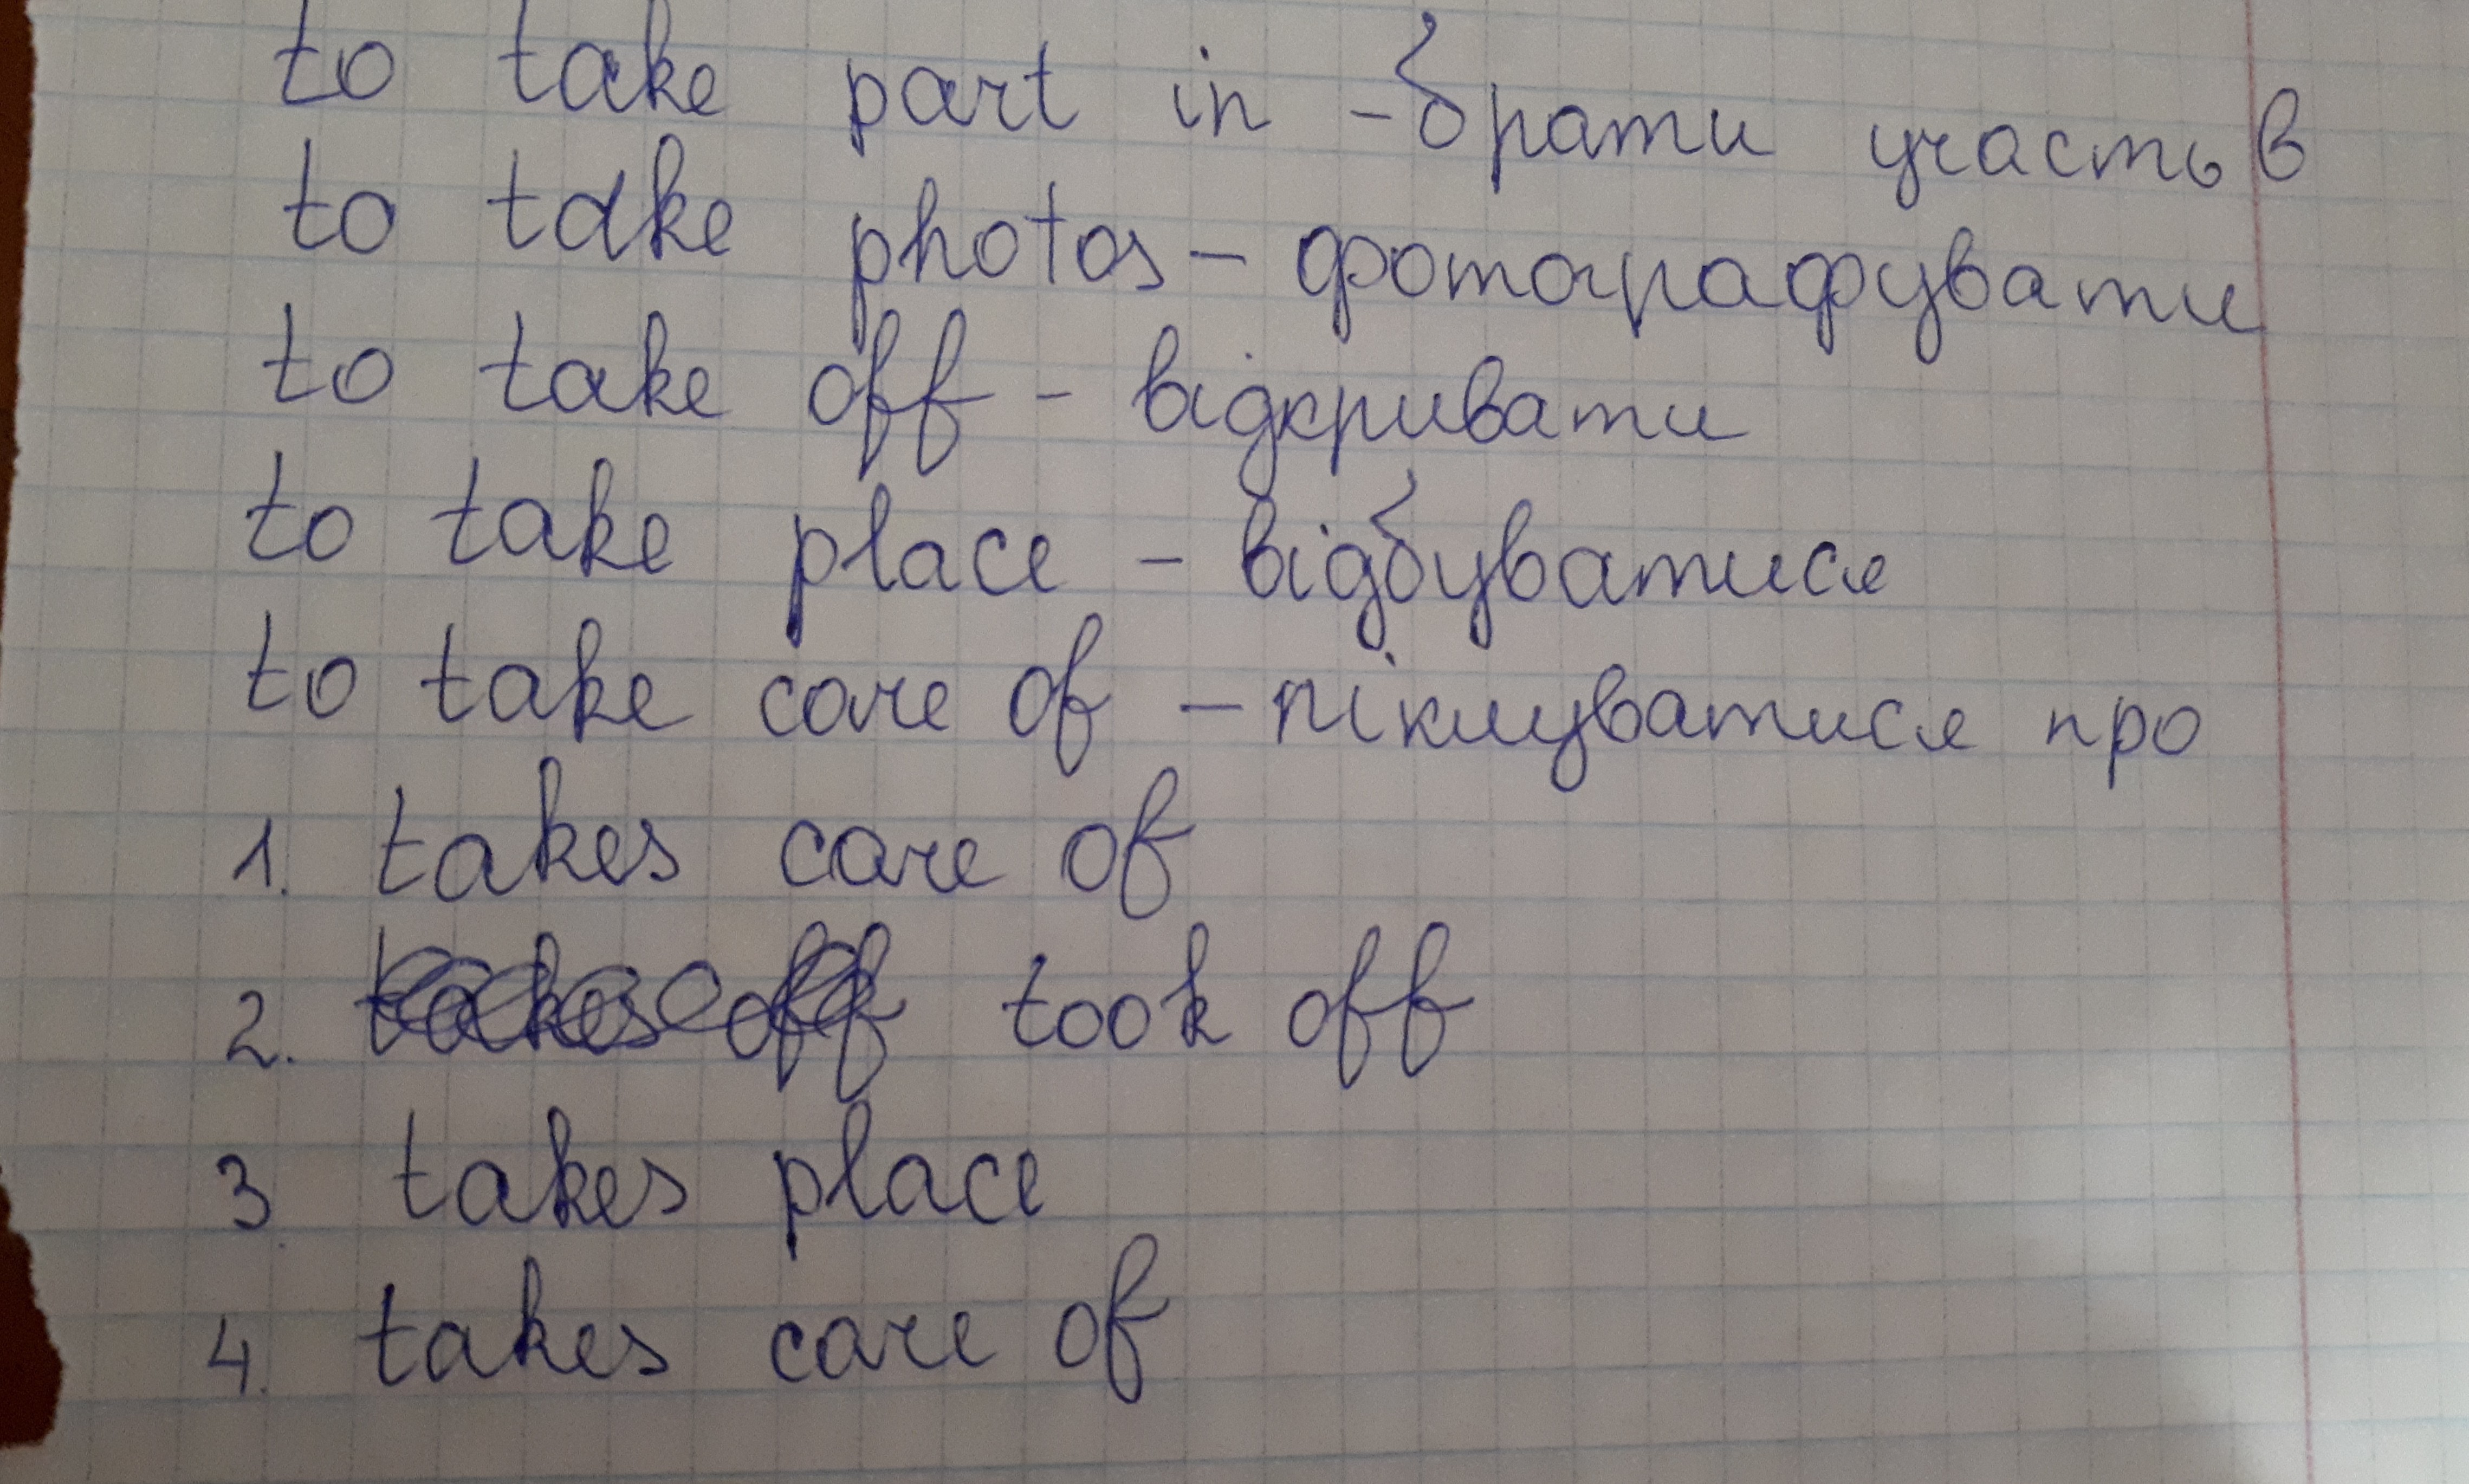 to take part in - брати участь в
to take photos - фотографувати
to take off - відкривати
to take place - відбуватися
to take care of - піклуватися про
1. takes care of
2. takes off took off
3. takes place
4. takes care of